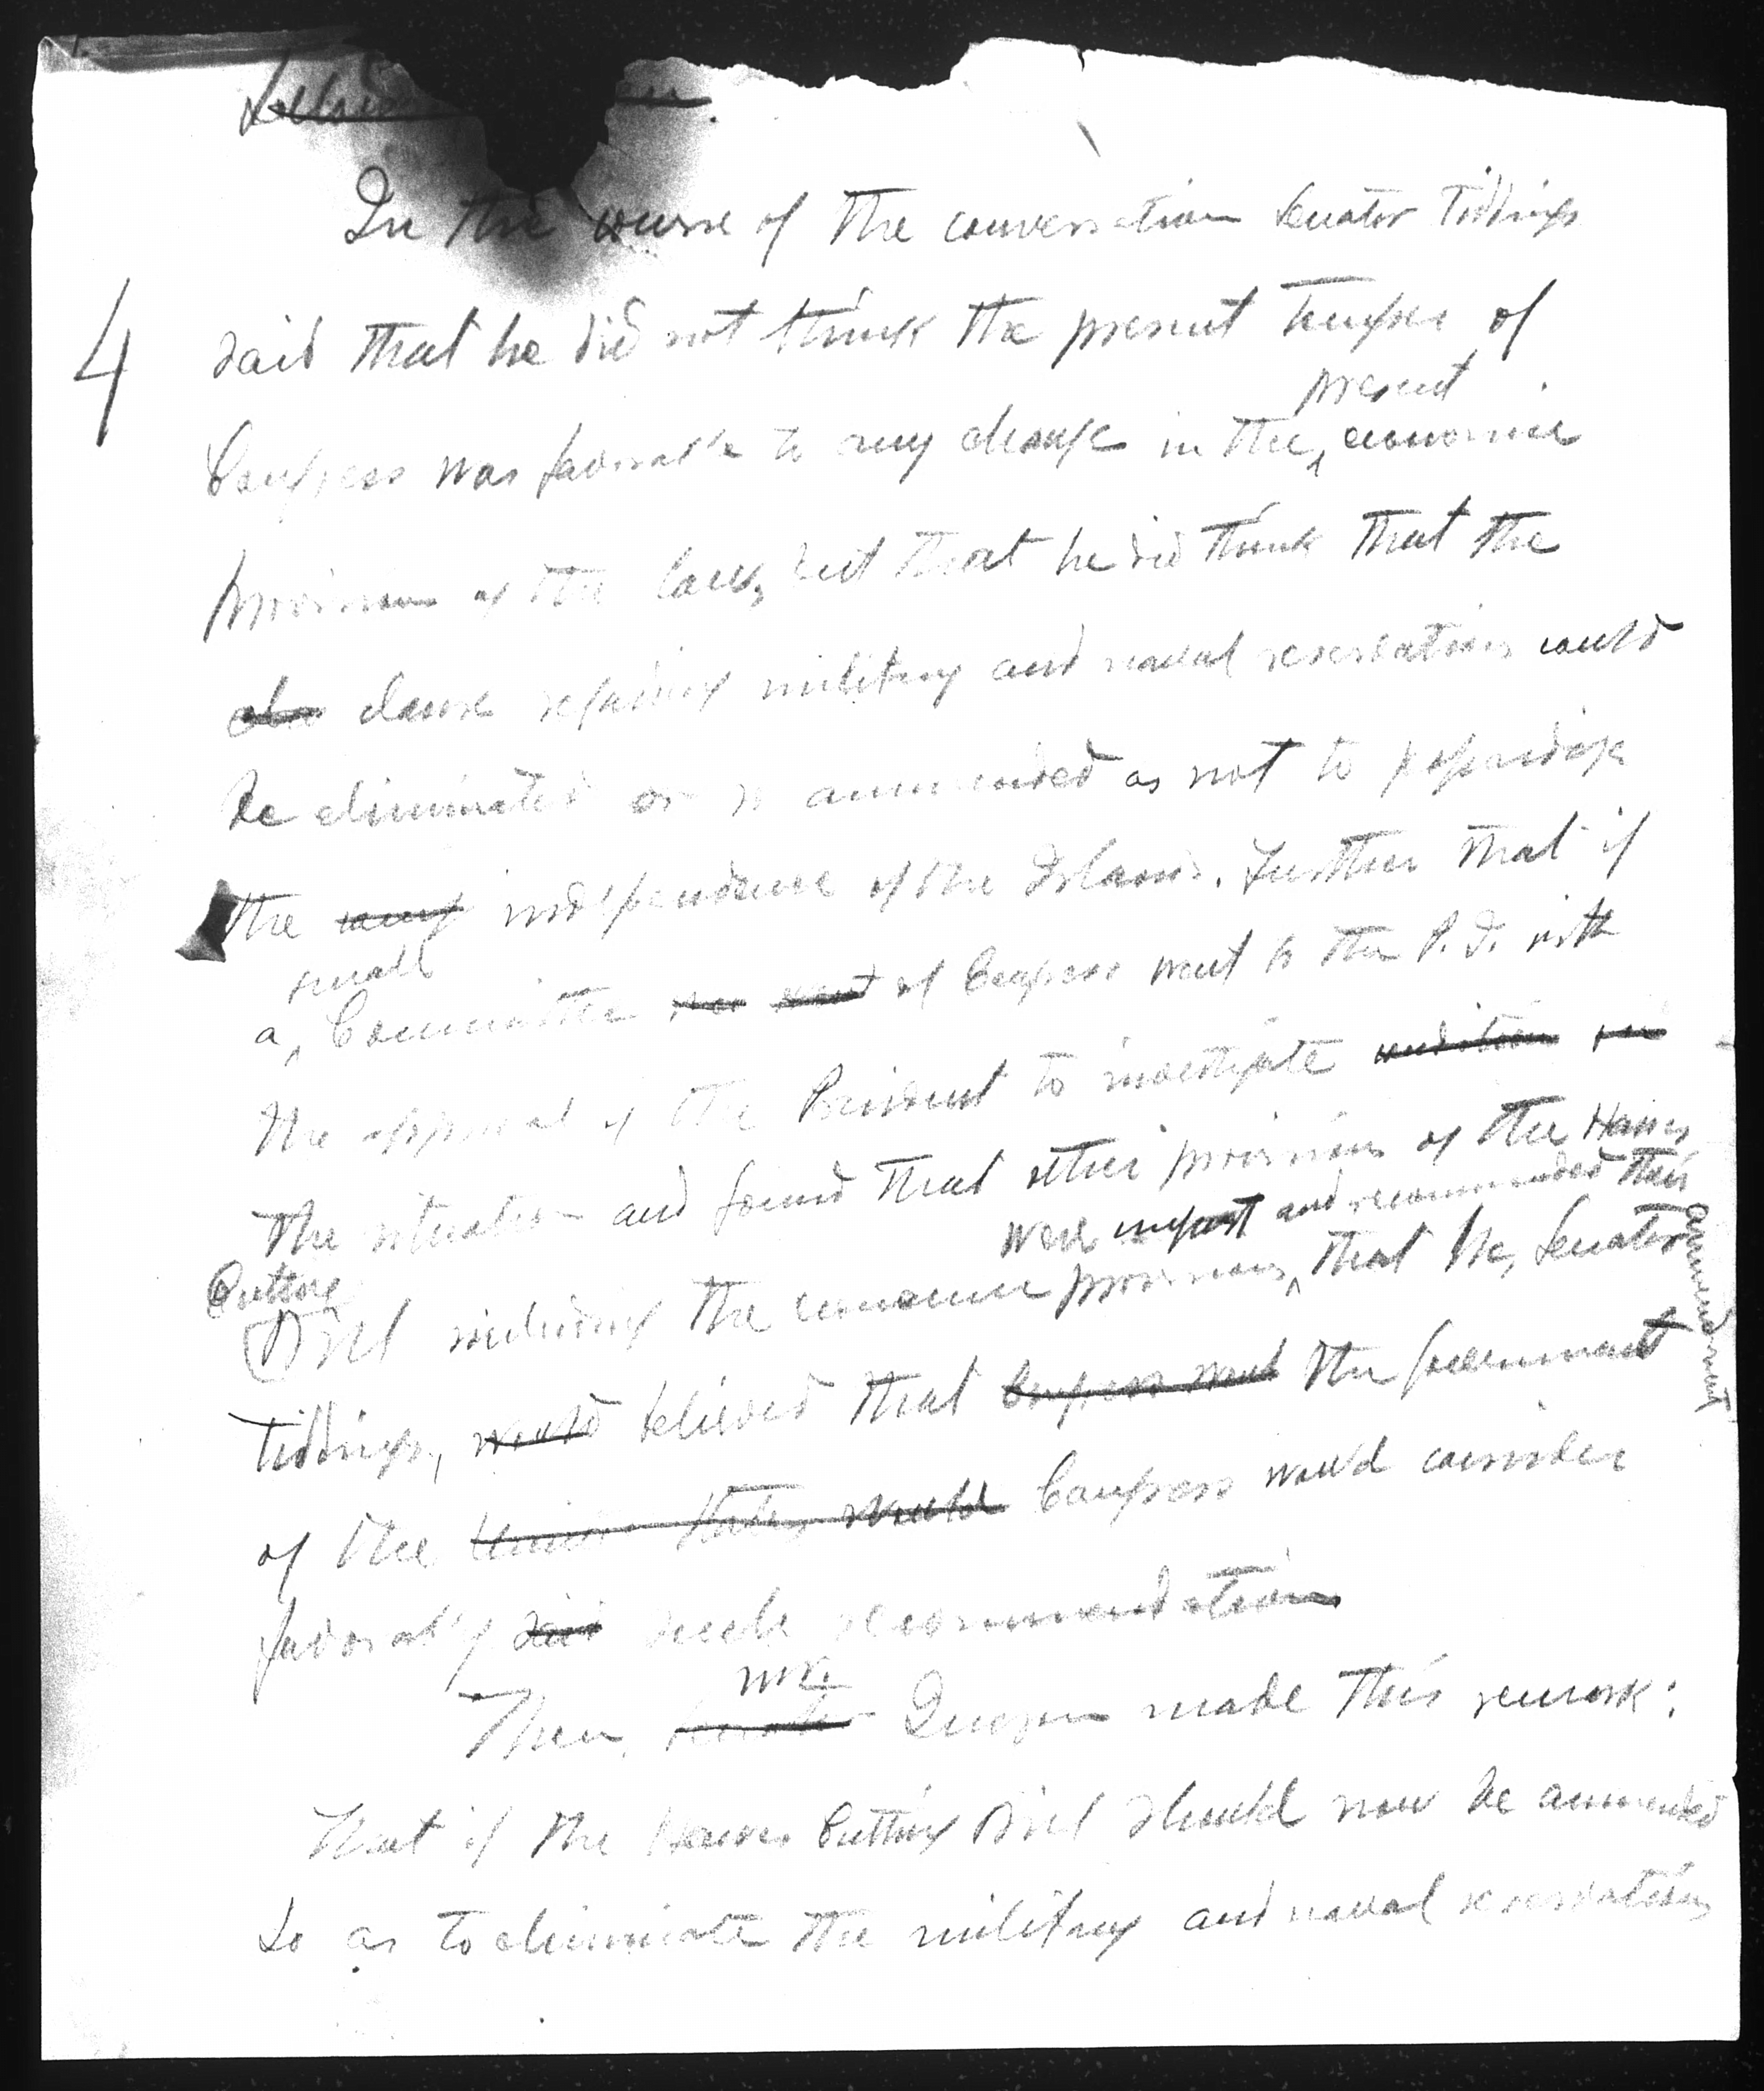 In the course of the conversation Senator Tiddings
4
said that he did not think the present temper of
present
Congress was favorable to any change in the economic
provisions of the law, but that he did think that the
clause regarding military and naval reservations could
be eliminated or so ammended as not to jeopardize
the independence of the Islands. Further that if
small
a Committee of Congress went to the P.I. with
the approval of the President to investigate condition
the situation and found that other provisions of the Hawes
were unjust and recommended their
ammendment
Cutting
Bill including the economic provisions, that he, Senator
Tiddings, would believed that Congress would the government
of the United States would Congress would consider
favorably said such recommendations
Mr.
Then, Senator Quezon made this remark:
That if the Hawes Cutting Bill should now be ammended
so as to eliminate the military and naval reservations